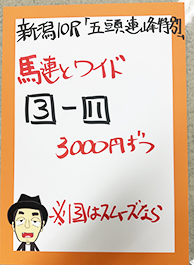 新潟10R「五頭連山特別」
馬連とワイド
3-11
3000円ずつ
※3はスムーズなら